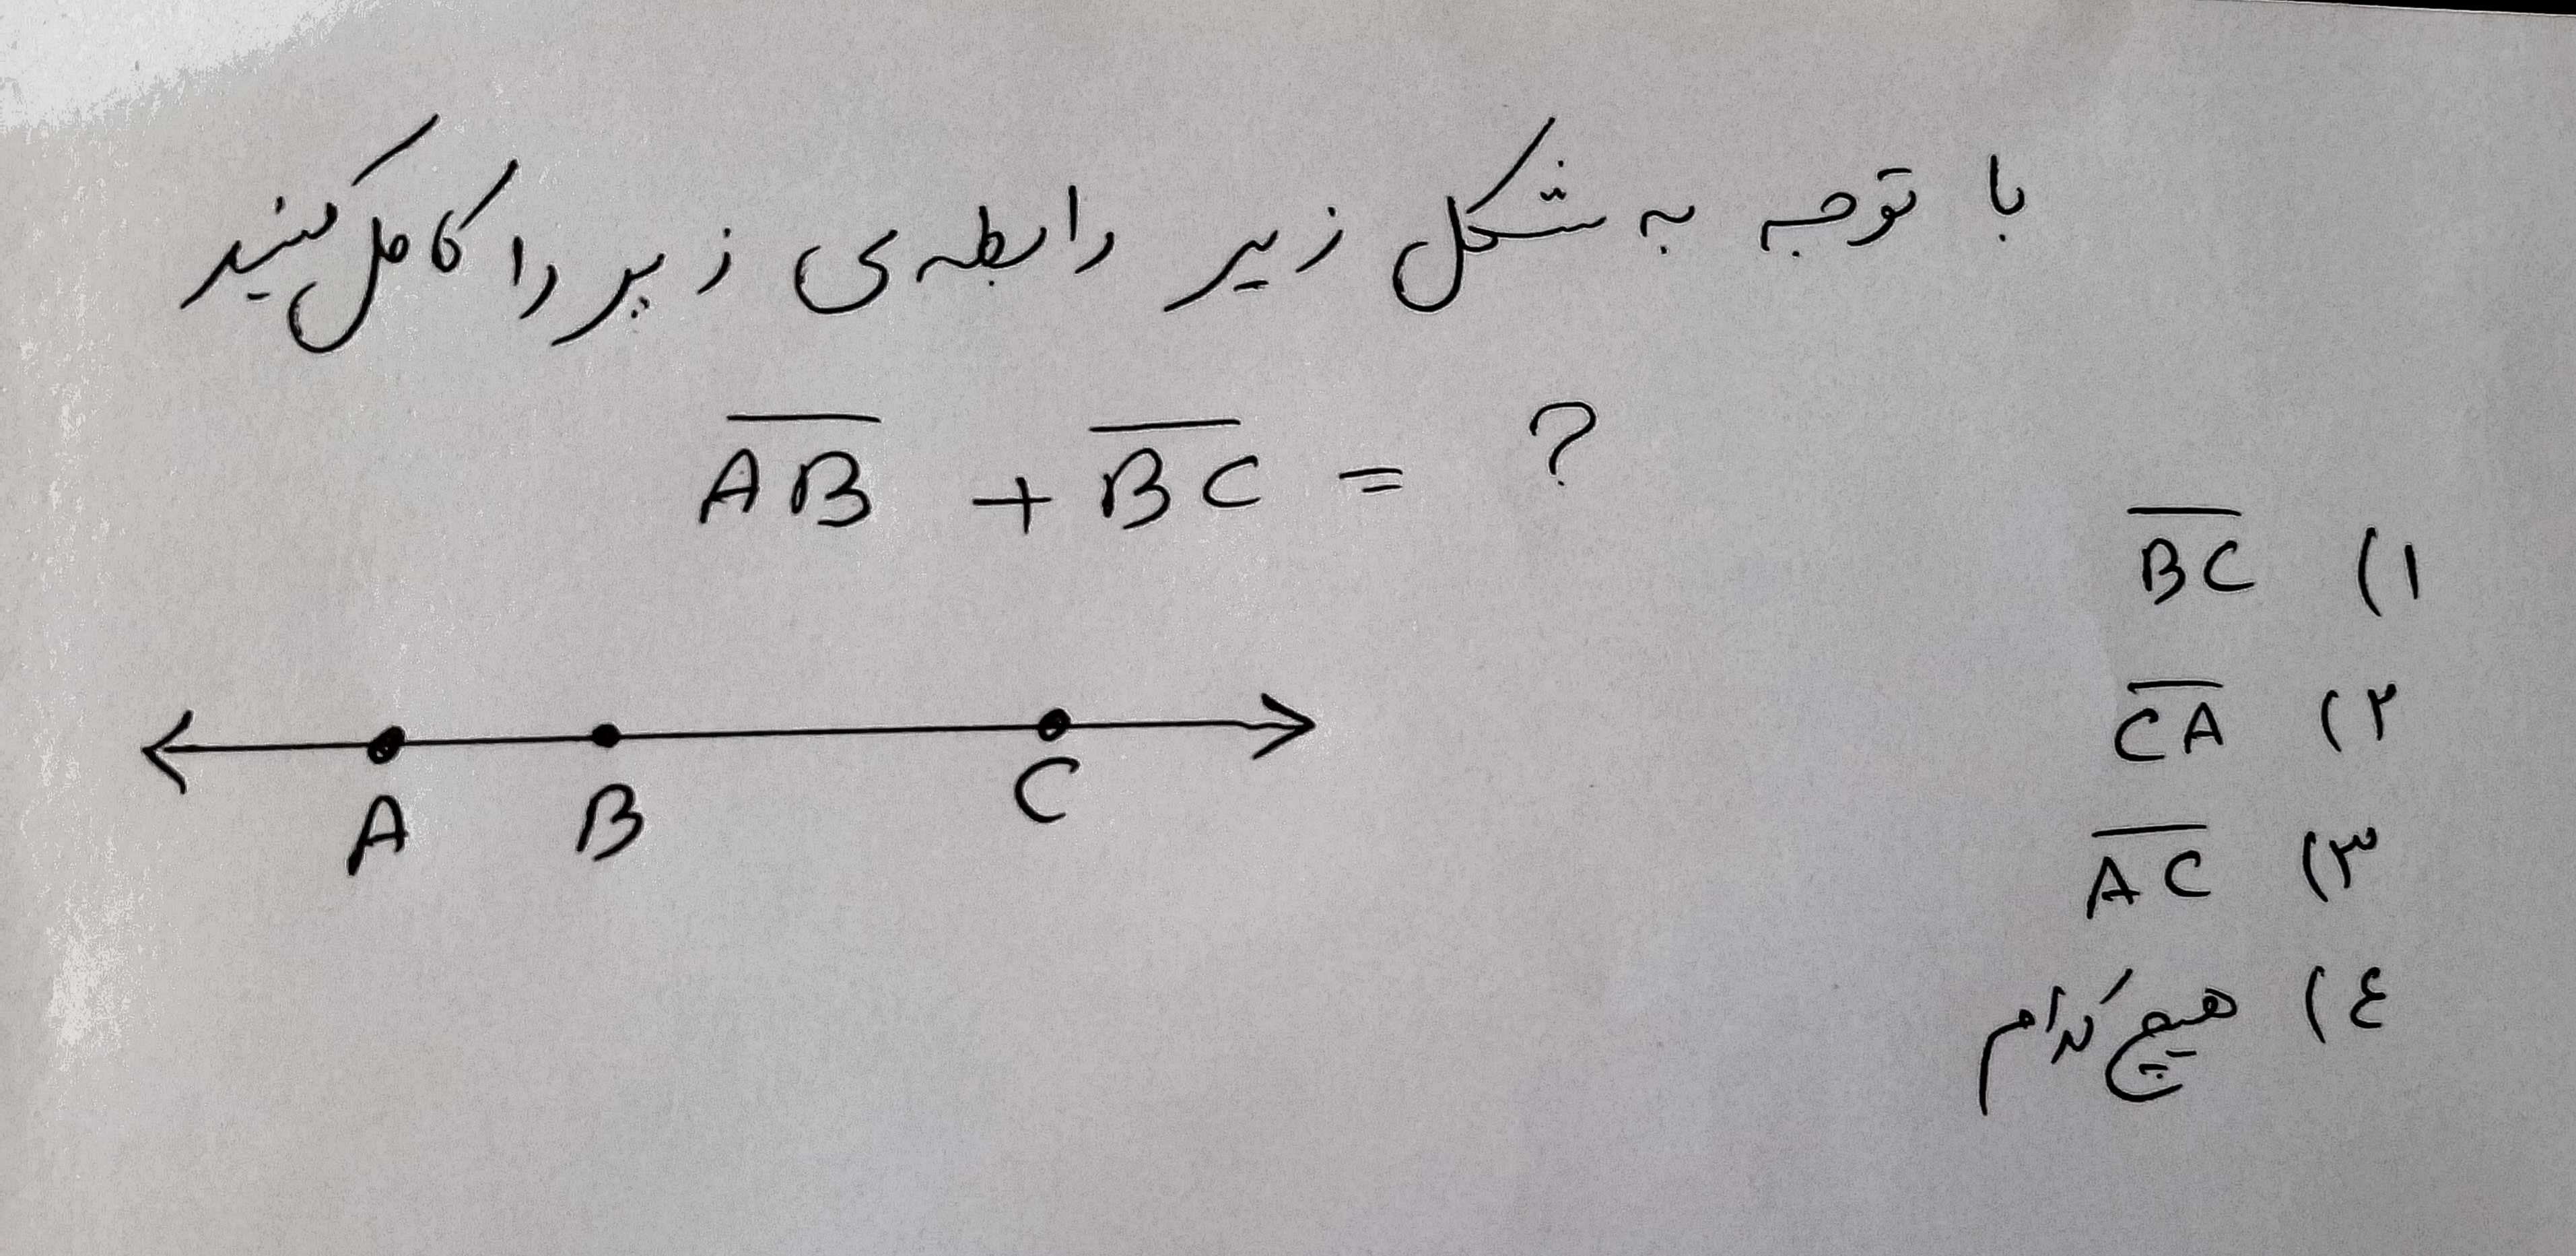 با توجه به شکل زیر رابطه‌ی زیر را کامل کنید
A̅B̅ + B̅C̅ = ?
۱) B̅C̅
۲) C̅A̅
۳) A̅C̅
٤) هیچ کدام
A B C